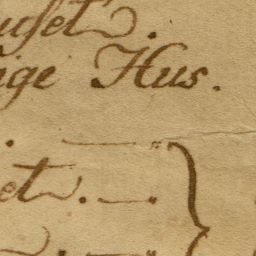 uset.
ige Hus.
. — "
et. — .